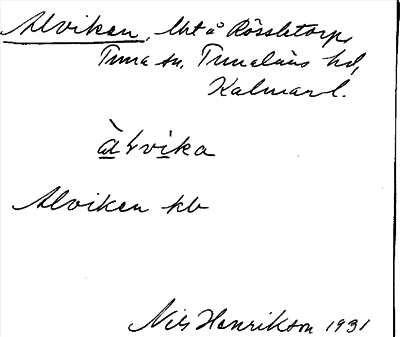 Alviken, lht å Rössletorp,
Tuna sn, Tunaläns hd,
Kalmar l.
àⱡvi̱ka
Alviken kb
Nils Henrikson 1931